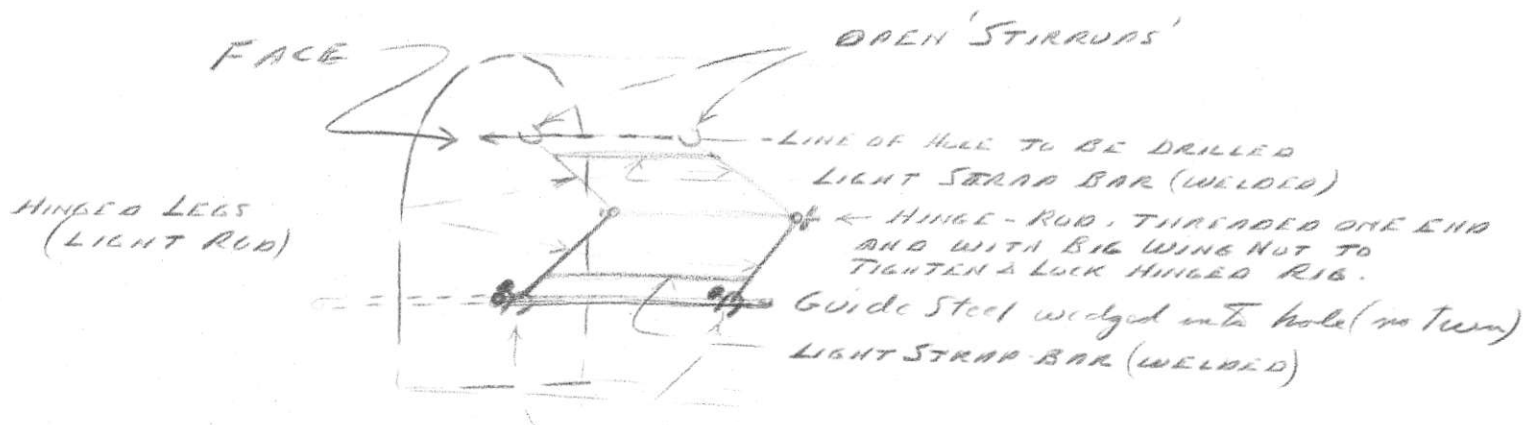 FACE
OPEN 'STIRRUPS'
LINE OF HOLE TO BE DRILLED
LIGHT STRAP BAR (WELDED)
HINGED LEGS
(LIGHT ROD)
HINGE-ROD, THREADED ONE END
AND WITH BIG WING NUT TO
TIGHTEN & LOCK HINGED RIG.
Guide Steel wedged into hole (no Turn)
LIGHT STRAP-BAR (WELDED)